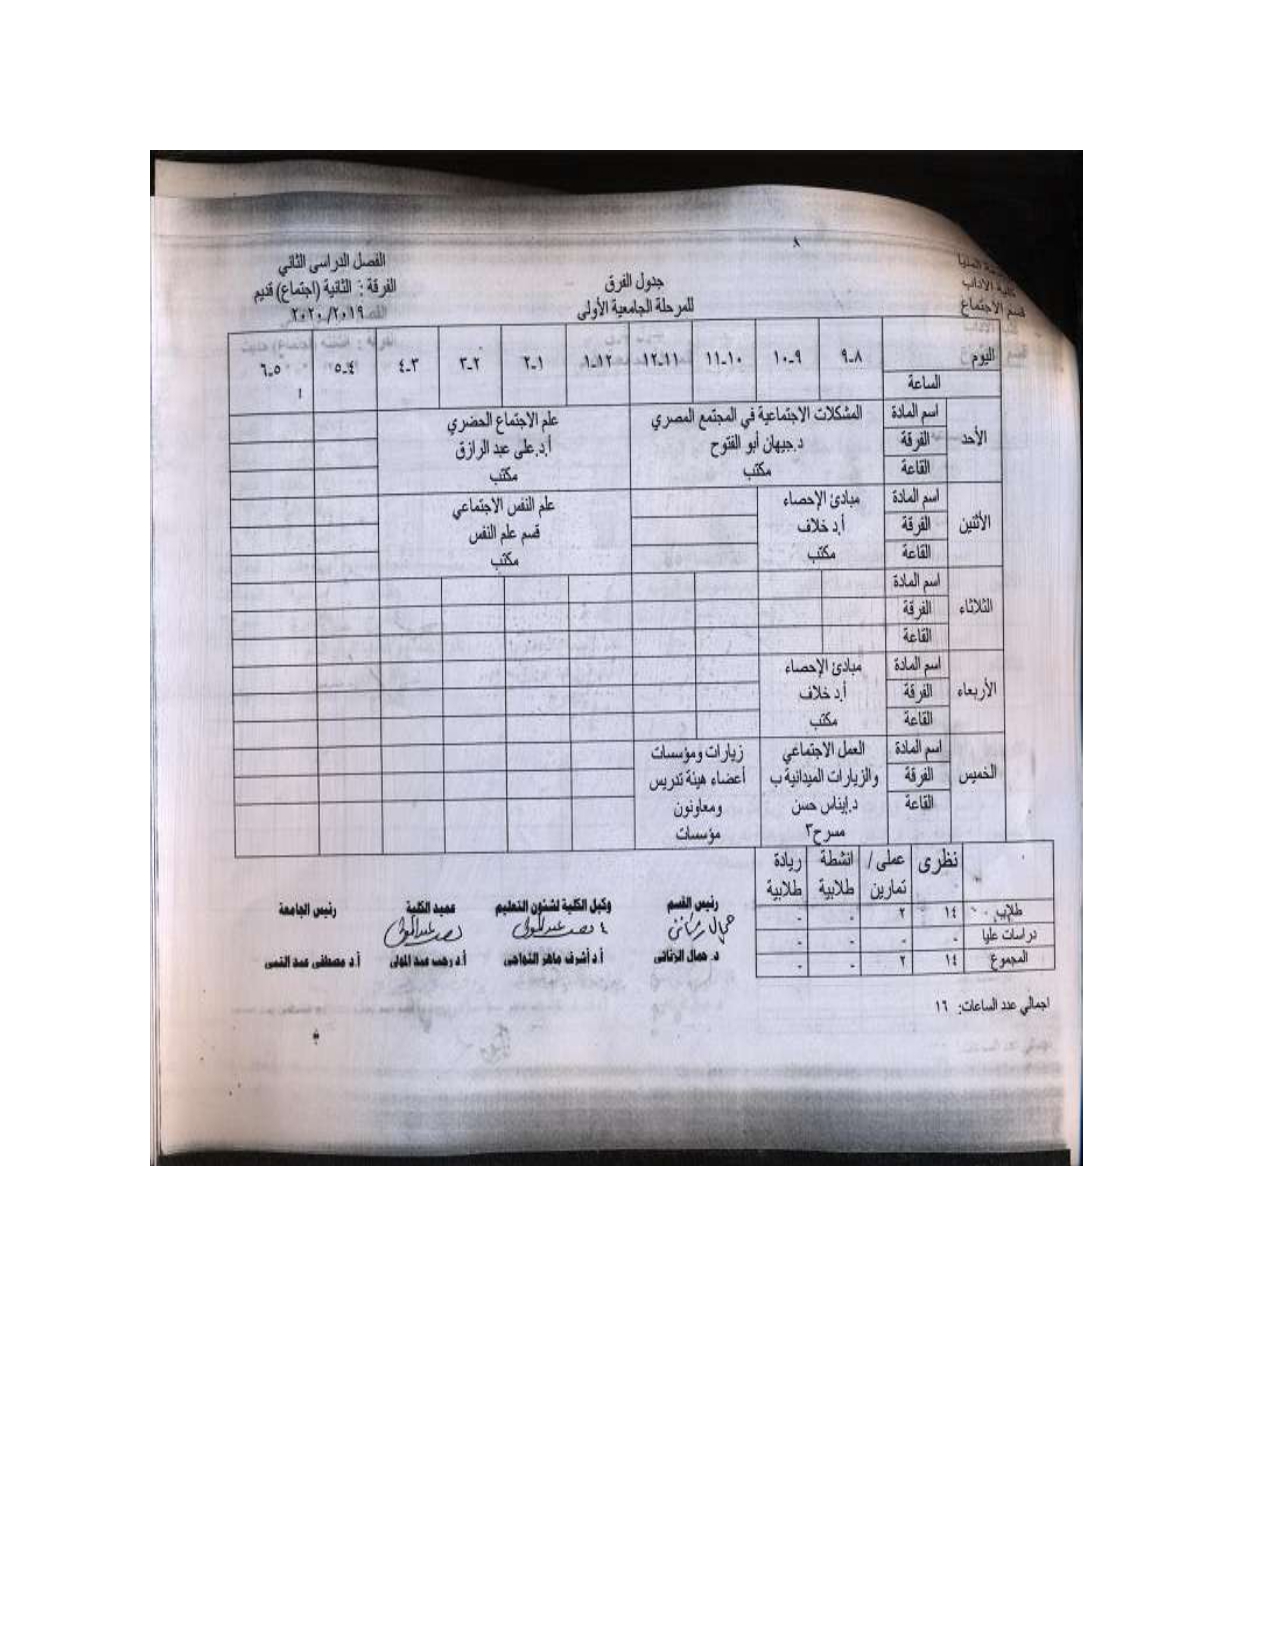 ٨
كلية الآداب
قسم الاجتماع
جدول الفرق
للمرحلة الجامعية الأولى
الفصل الدراسى الثاني
الفرقة : الثانية (اجتماع) قديم
٢٠٢٠/٢٠١٩
اليوم ٨-٩ ٩-١٠ ١٠-١١ ١١-١٢ ١٢-١ ١-٢ ٢-٣ ٣-٤ ٤-٥ ٥-٦
الساعة
الأحد
اسم المادة المشكلات الاجتماعية في المجتمع المصري علم الاجتماع الحضري
الفرقة د.جيهان أبو الفتوح أ.د.على عبد الرازق
القاعة مكتب مكتب
الأثنين
اسم المادة مبادئ الإحصاء علم النفس الاجتماعي
الفرقة أ.د خلاف قسم علم النفس
القاعة مكتب مكتب
الثلاثاء
اسم المادة
الفرقة
القاعة
الأربعاء
اسم المادة مبادئ الإحصاء
الفرقة أ.د خلاف
القاعة مكتب
الخميس
اسم المادة العمل الاجتماعي زيارات ومؤسسات
الفرقة والزيارات الميدانية ب أعضاء هيئة تدريس
القاعة د.إيناس حسن ومعاونون
مسرح٣ مؤسسات
نظرى عملى / انشطة ريادة
تمارين طلابية طلابية
طلاب ١٤ ٢ - -
دراسات عليا - - - -
المجموع ١٤ ٢ - -
رئيس القسم وكيل الكلية لشئون التعليم عميد الكلية رئيس الجامعة
د. جمال الزناتى أ.د أشرف ماهر النواجى أ.د رجب عبد المولى أ.د مصطفى عبد النبى
اجمالي عدد الساعات: ١٦